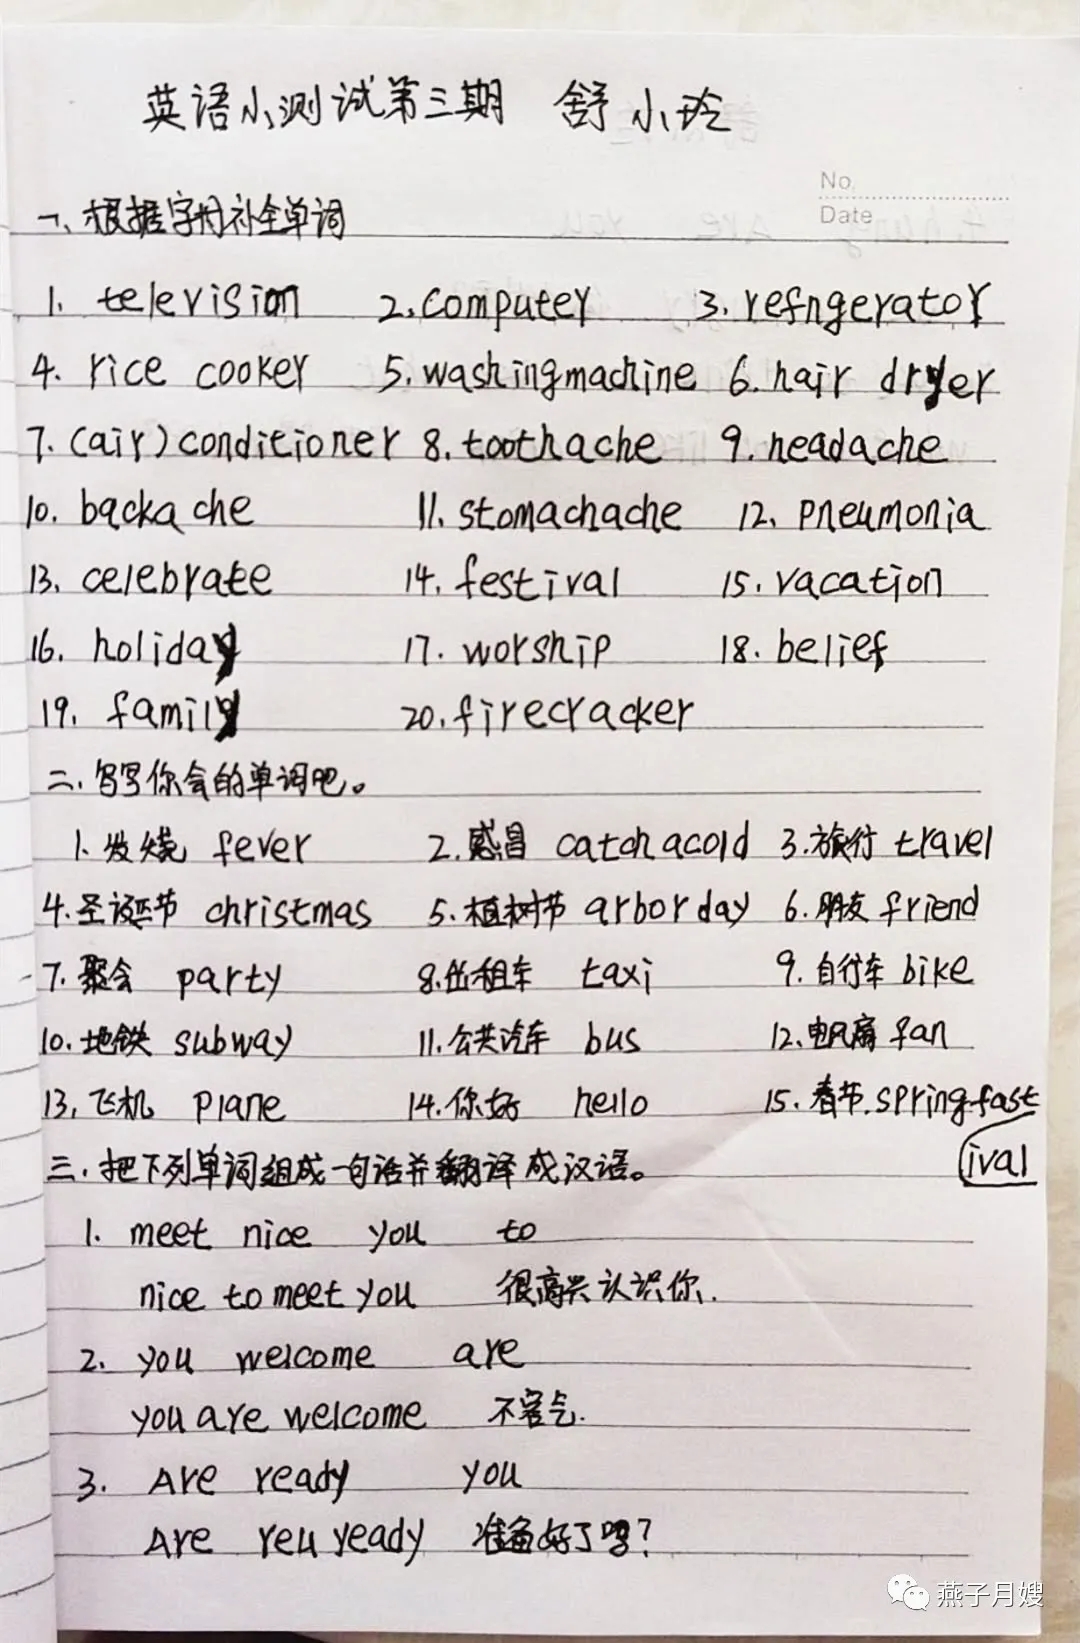 英语小测试第三期 舒小玲
No.
Date
一、根据字母补全单词
1. television 2. computer 3. refrigerator
4. rice cooker 5. washing machine 6. hair dryer
7. (air) conditioner 8. toothache 9. headache
10. backache 11. stomachache 12. pneumonia
13. celebrate 14. festival 15. vacation
16. holiday 17. worship 18. belief
19. family 20. firecracker
二、写写你会的单词吧。
1. 发烧 fever 2. 感冒 catch a cold 3. 旅行 travel
4. 圣诞节 christmas 5. 植树节 arbor day 6. 朋友 friend
7. 聚会 party 8. 出租车 taxi 9. 自行车 bike
10. 地铁 subway 11. 公共汽车 bus 12. 电风扇 fan
13. 飞机 plane 14. 你好 hello 15. 春节. spring fast
ival
三、把下列单词组成一句话并翻译成汉语。
1. meet nice you to
nice to meet you 很高兴认识你.
2. you welcome are
you are welcome 不客气.
3. Are ready you
Are you ready 准备好了吗?
燕子月嫂